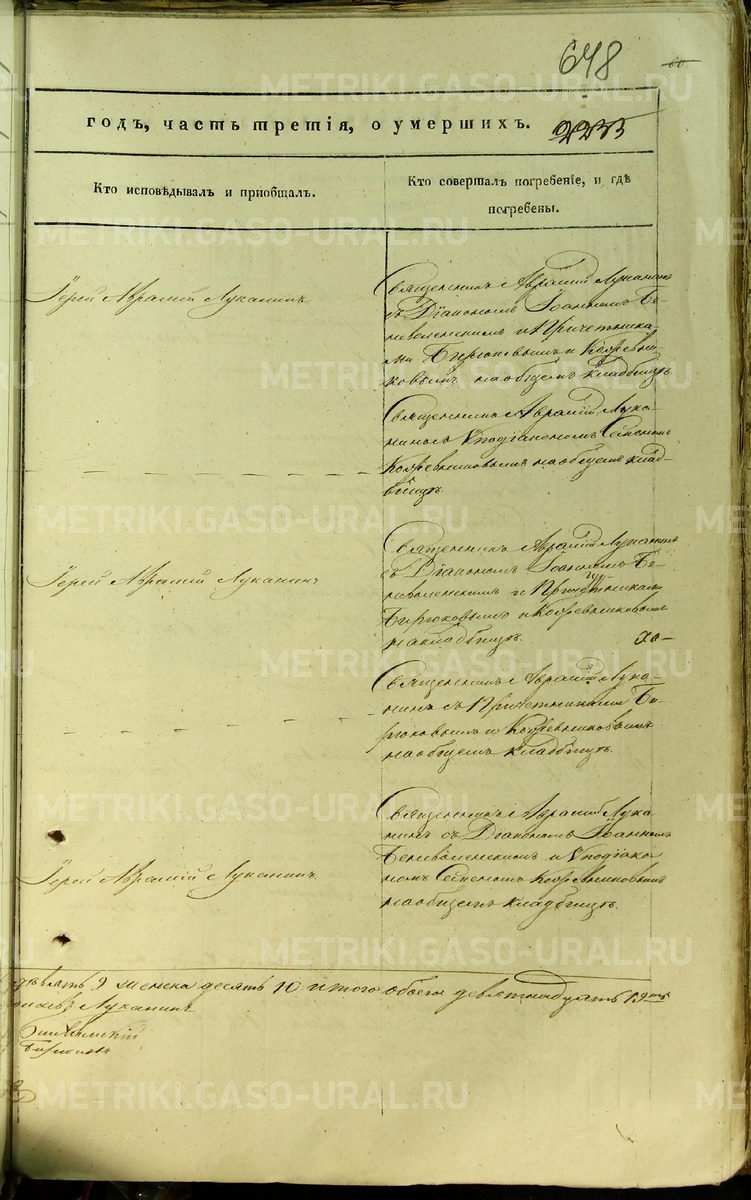 648
60
годъ, часть третія, о умершихъ. 2235
Кто исповѣдывалъ и пріобщалъ.
Кто совершалъ погребеніе, и гдѣ
погребены.
Іерей Аврамій Луканинъ
Священникъ Аврамій Луканинъ
съ Діакономъ Іоанномъ Бе-
неволенскимъ и Причетника-
ми Бирюковымъ и Кожевни-
ковымъ на общемъ кладбищѣ
Священникъ Аврамій Лука-
нинъ съ Иподіакономъ Семеномъ
Кожевниковымъ на общемъ клад-
бищѣ.
Іерей Аврамій Луканинъ
Священникъ Аврамій Луканинъ
съ Діакономъ Іоанномъ Бе-
неволенскимъ и Причетниками
Бирюковымъ и Кожевниковымъ
на кладбищѣ.
Священникъ Аврамій Лука-
нинъ съ Причетниками Би-
рюковымъ и Кожевниковымъ
на общемъ кладбищѣ.
Іерей Аврамій Луканинъ
Священникъ Аврамій Лука-
нинъ съ Діакономъ Іоанномъ
Беневоленскимъ и Иподіако-
номъ Семеномъ Кожевниковымъ
на общемъ кладбищѣ.
девять 9 женска десять 10 итого обоего девятнадцать 19ть
Луканинъ
Бирюковъ
METRIKI.GASO-URAL.RU